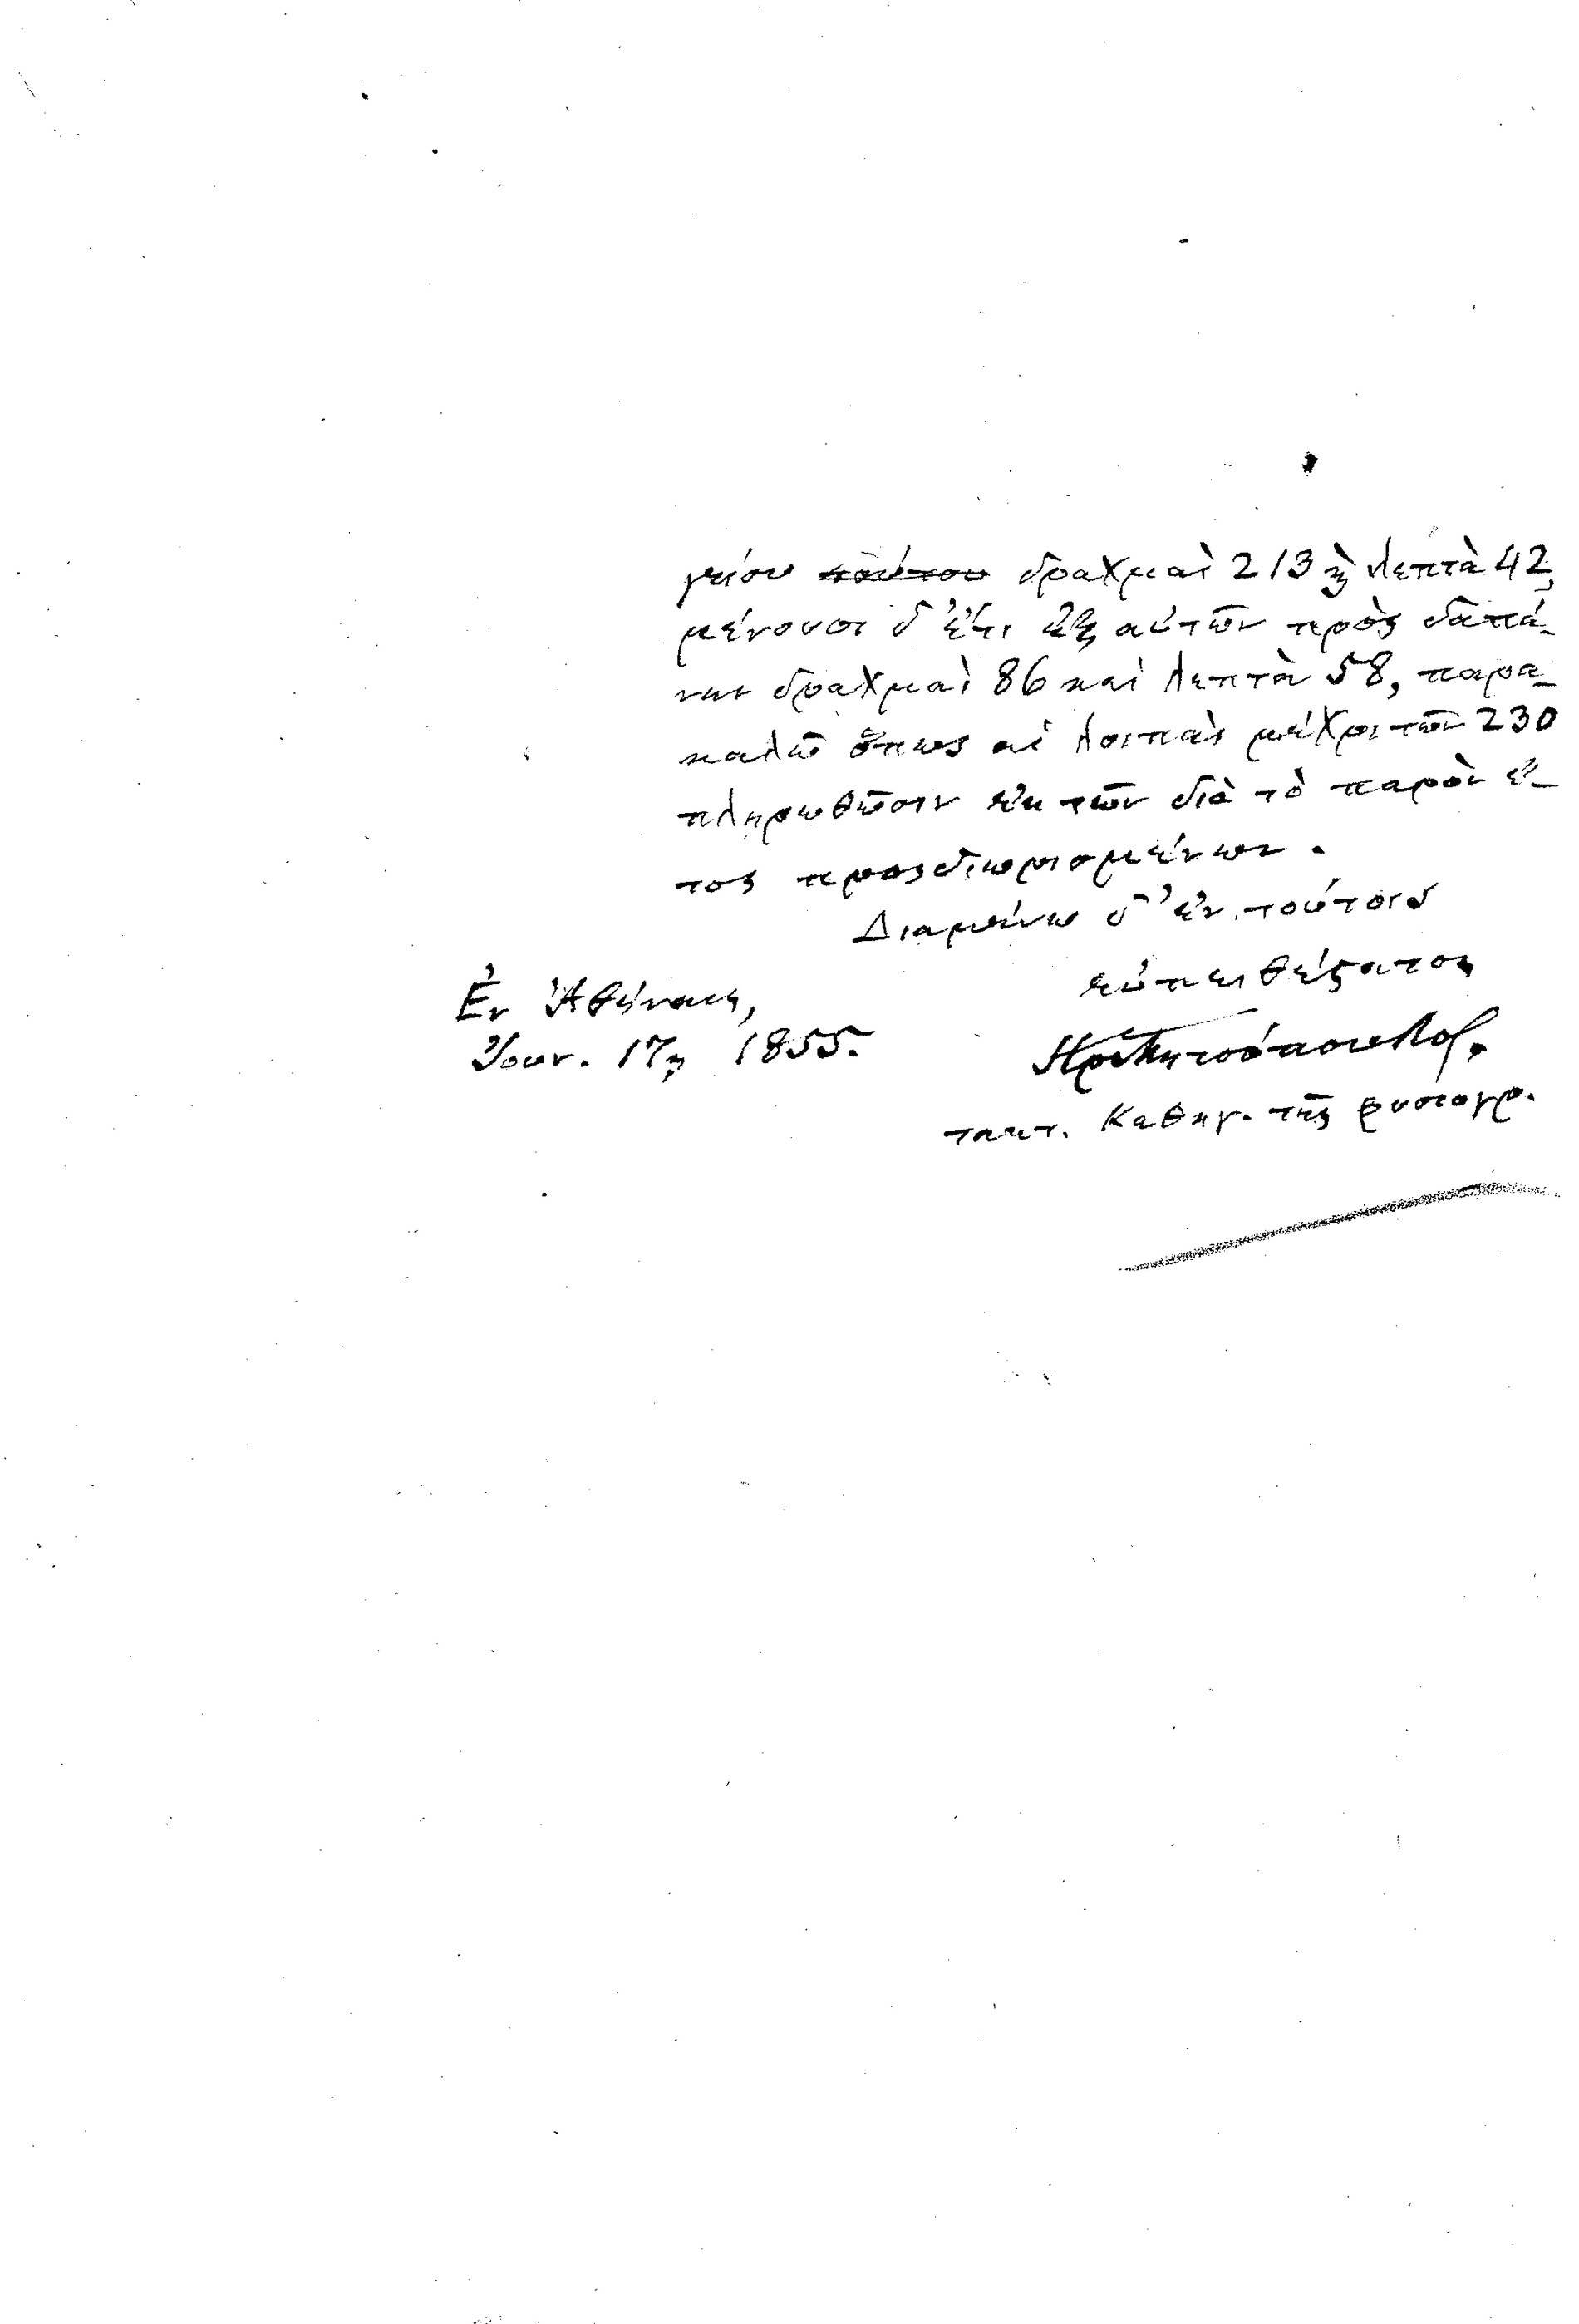 γείου τούτου δραχμαὶ 213 ϗ λεπτὰ 42,
μένουσι δ' ἔτι ἐξ αὐτῶν πρὸς δαπά-
νην δραχμαὶ 86 καὶ λεπτὰ 58, παρα-
καλῶ ὅπως αἱ λοιπαὶ μέχρι τῶν 230
πληρωθῶσιν ἐκ τῶν διὰ τὸ παρὸν ἔ-
τος προςδιωρισμένων.
Διαμένω δ' ἐν τούτοις
εὐπειθέςατος
Ἐν Ἀθήναις,
Ἰουν. 17ῃ 1855.
τακτ. Καθηγ. τῆς φυσιογρ.